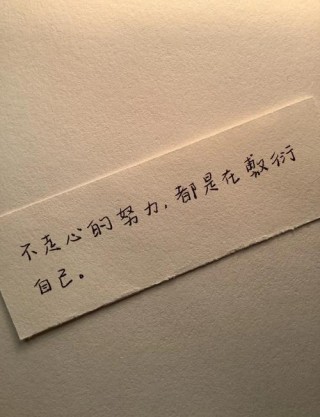 不走心的努力，都是在敷衍
自己。